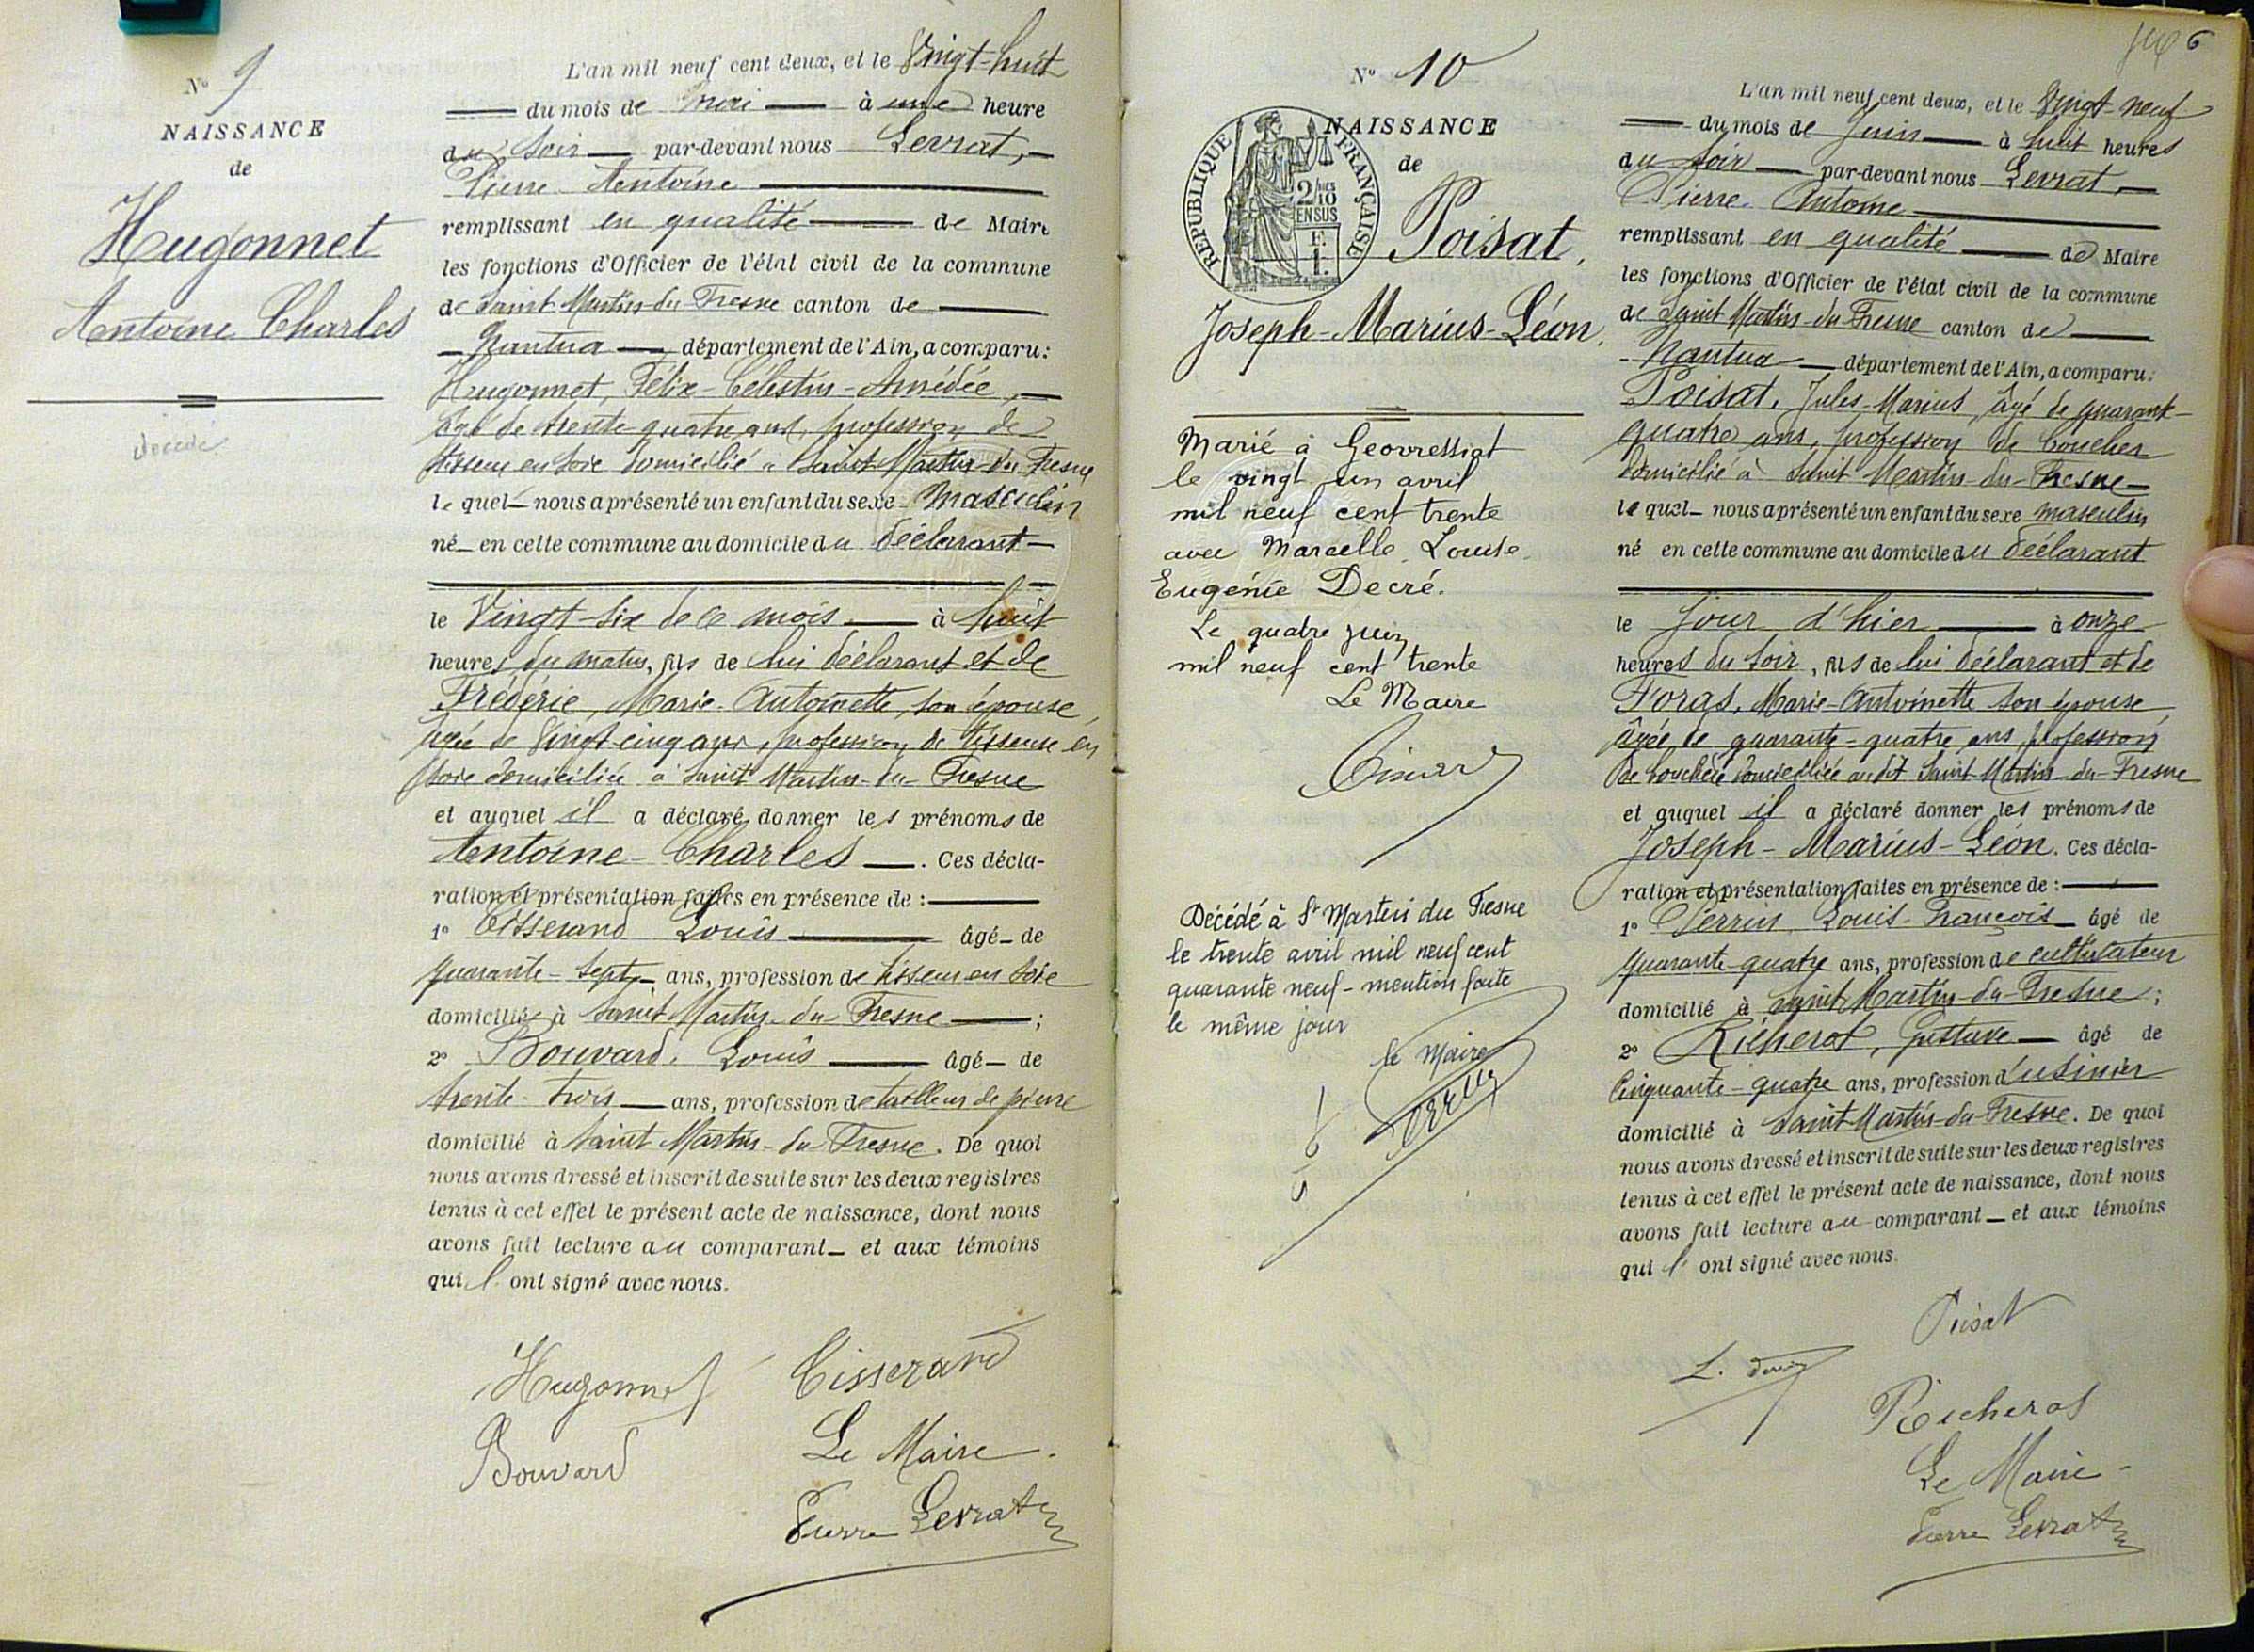 N° 9
NAISSANCE
de
Hugonnet
Antoine Charles
décédé
L'an mil neuf cent deux, et le Vingt-huit
du mois de mai à une heure
du soir par-devant nous Levrat,
Pierre Antoine
remplissant en qualité de Maire
les fonctions d'Officier de l'état civil de la commune
de Saint Martin-du Fresne canton de
Nantua, département de l'Ain, a comparu:
Hugonnet, Félix-Célestin-Amédée,
âgé de trente quatre ans, profession de
tisseur en soie domicilié à Saint Martin-du Fresne
lequel nous a présenté un enfant du sexe masculin
né en cette commune au domicile du déclarant
le Vingt-six de ce mois à huit
heures du matin, fils de lui déclarant et de
Frédéric, Marie-Antoinette, son épouse,
âgée de Vingt-cinq ans, profession de tisseuse en
soie domiciliée à Saint Martin-du-Fresne
et auquel il a déclaré donner les prénoms de
Antoine-Charles. Ces décla-
ration et présentation faites en présence de :
1° Tisserand Louis âgé de
quarante-sept ans, profession de tisseur en soie
domicilié à Saint Martin-du Fresne ;
2° Bouvard, Louis âgé de
trente-trois ans, profession de tailleur de pierre
domicilié à Saint Martin-du Fresne. De quoi
nous avons dressé et inscrit de suite sur les deux registres
tenus à cet effet le présent acte de naissance, dont nous
avons fait lecture au comparant et aux témoins
qui l'ont signé avec nous.
Hugonnet Tisserand
Bouvard Le Maire
Pierre Levrat
6
N° 10
NAISSANCE
de
RÉPUBLIQUE FRANÇAISE
2/10 EN SUS
Poisat,
Joseph-Marius-Léon.
Marié à Geovressiat
le vingt un avril
mil neuf cent trente
avec Marcelle Louise
Eugénie Decré.
Le quatre juin
mil neuf cent trente
Le Maire
Décédé à St Martin du Fresne
le trente avril mil neuf cent
quarante neuf - mention faite
le même jour
le Maire
L'an mil neuf cent deux, et le Vingt-neuf
du mois de Juin à huit heures
du soir par-devant nous Levrat,
Pierre Antoine
remplissant en qualité de Maire
les fonctions d'Officier de l'état civil de la commune
de Saint Martin-du Fresne canton de
Nantua département de l'Ain, a comparu:
Poisat, Jules-Marius, âgé de quarante-
quatre ans, profession de boucher
domicilié à Saint Martin-du-Fresne
lequel nous a présenté un enfant du sexe masculin
né en cette commune au domicile du déclarant
le jour d'hier à onze
heures du soir, fils de lui déclarant et de
Foras, Marie-Antoinette son épouse,
âgée de quarante-quatre ans, profession
de bouchère domiciliée audit Saint Martin-du-Fresne
et auquel il a déclaré donner les prénoms de
Joseph-Marius-Léon. Ces décla-
ration et présentation faites en présence de :
1° Perrin, Louis-François âgé de
quarante-quatre ans, profession de cultivateur
domicilié à Saint Martin-du-Fresne ;
2° Richerot, Gustave âgé de
Cinquante-quatre ans, profession d'usinier
domicilié à Saint Martin-du-Fresne. De quoi
nous avons dressé et inscrit de suite sur les deux registres
tenus à cet effet le présent acte de naissance, dont nous
avons fait lecture au comparant et aux témoins
qui l'ont signé avec nous.
Poisat
Richerot
Le Maire
Pierre Levrat